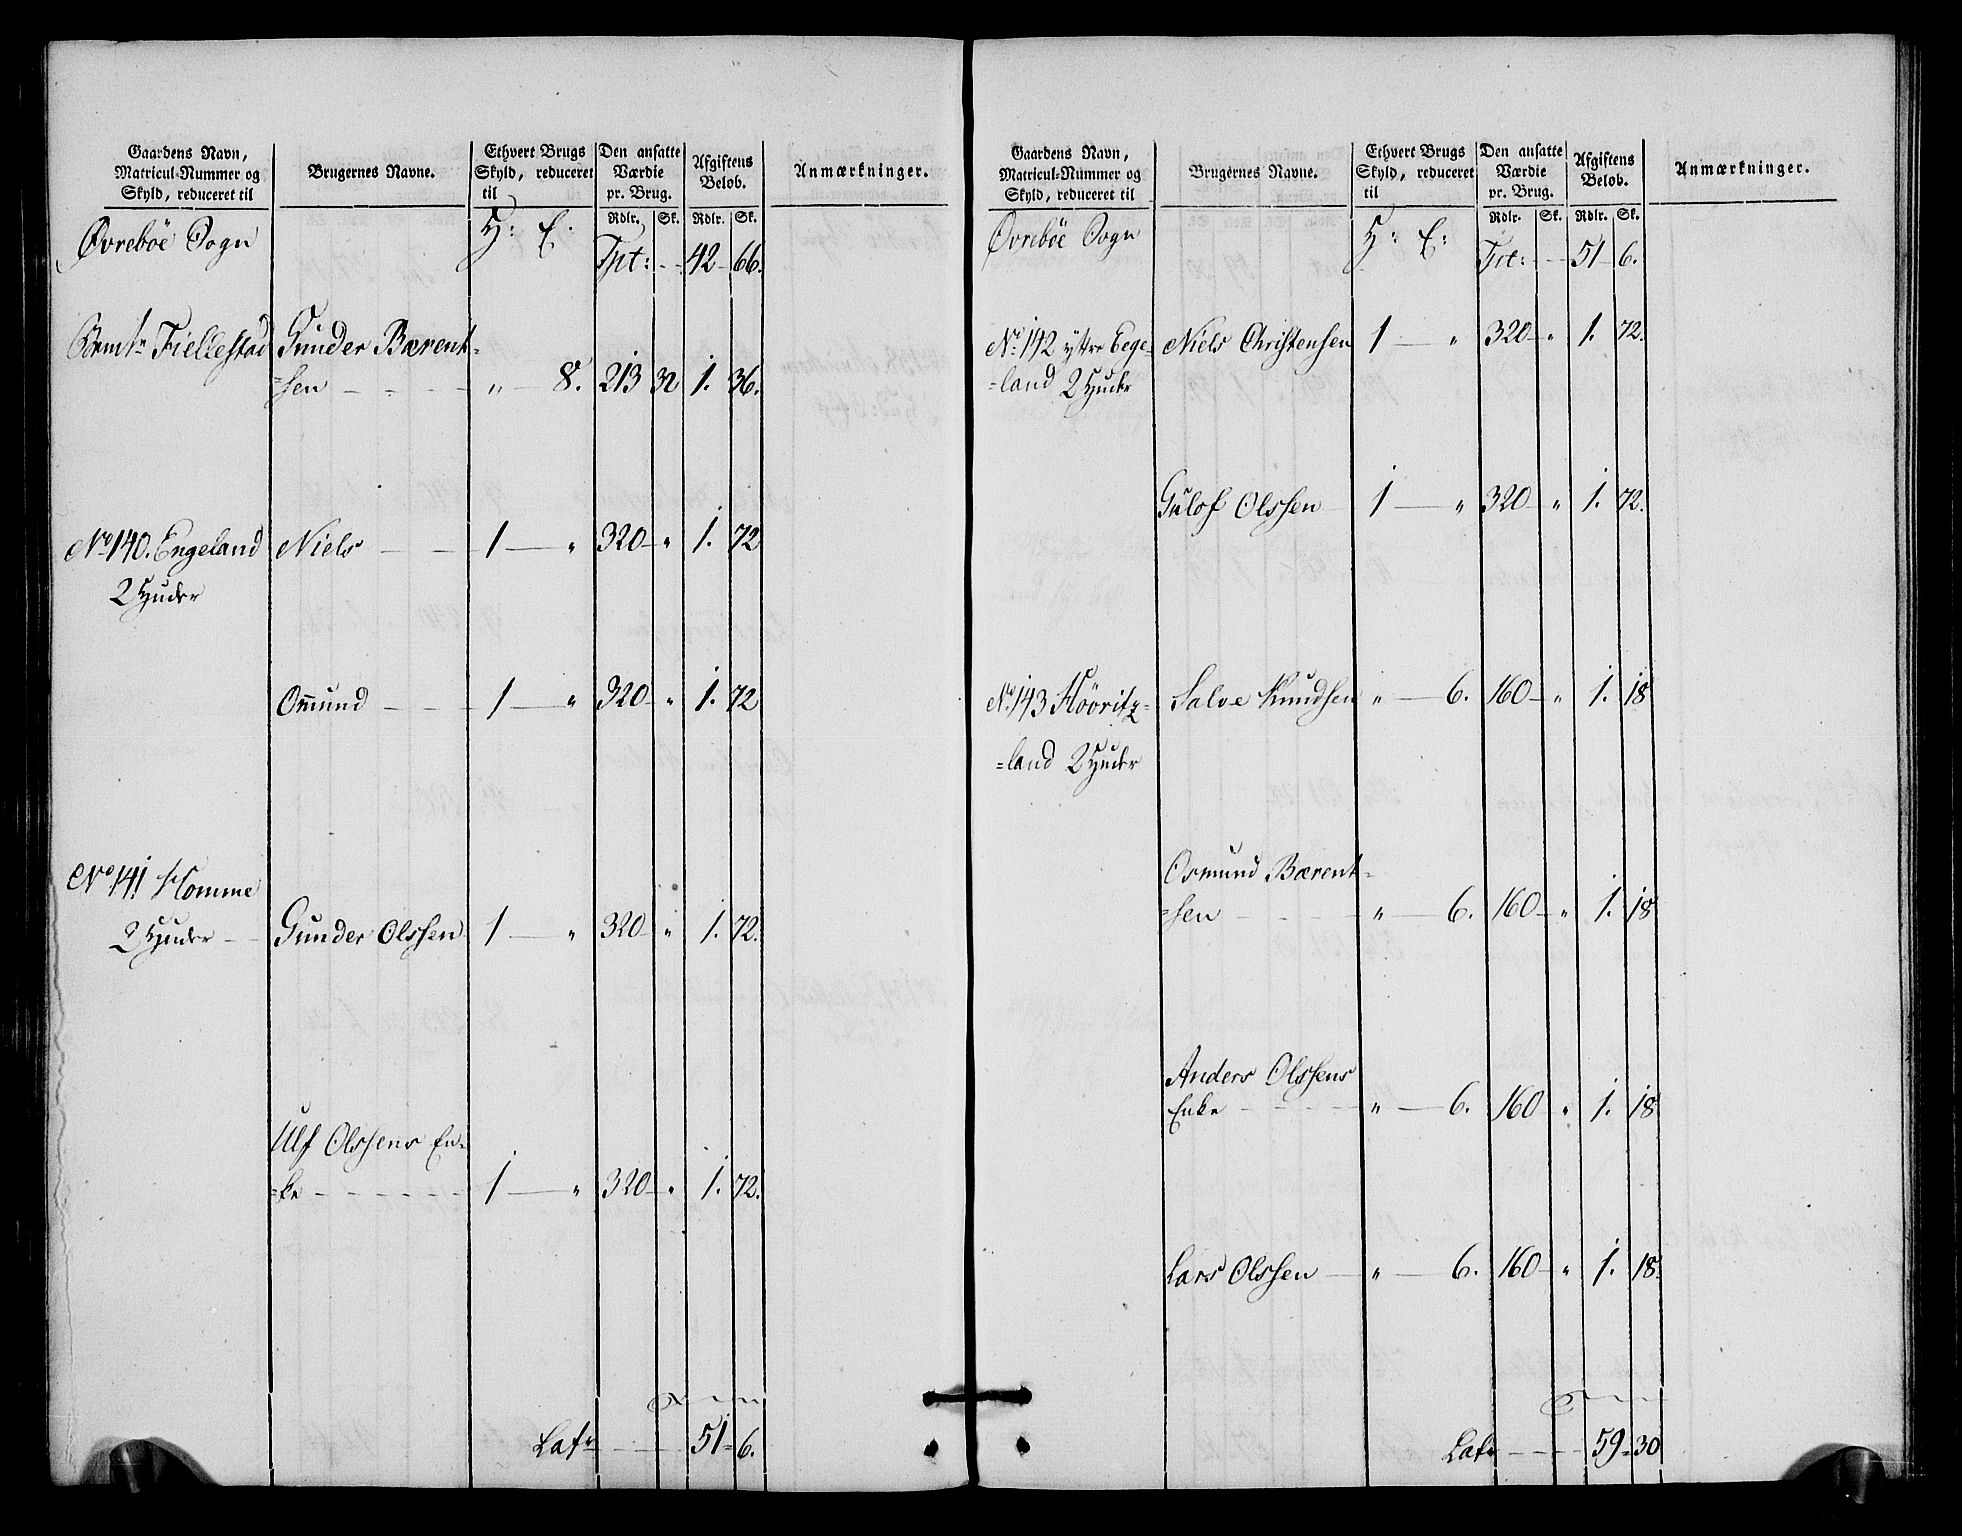 Gaardens Navn, Matricul-Nummer og Skyld, reduceret til | Brugernes Navne. | Ethvert Brugs Skyld, reduceret til | Den ansatte Værdie pr. Brug. Rdlr. Sk. | Afgiftens Beløb. Rdlr. Sk. | Anmærkninger.
Øvreböe Sogn H: E: Tpt: 42 66.
Bemte Fiellestad Gunder Bærent-
=sen „ 8. 213 32 1. 36.
No 140. Engeland Niels 1 „ 320 „ 1. 72
2 Huder
Omund 1 „ 320 „ 1. 72
No 141 Homme
2 Huder Gunder Olssen 1 „ 320 „ 1. 72.
Ulf Olssens En-
=ke 1 „ 320 „ 1. 72.
Late 51 6.
Gaardens Navn, Matricul-Nummer og Skyld, reduceret til | Brugernes Navne. | Ethvert Brugs Skyld, reduceret til | Den ansatte Værdie pr. Brug. Rdlr. Sk. | Afgiftens Beløb. Rdlr. Sk. | Anmærkninger.
Øvreböe Sogn H: E: Tpt: 51 6.
No 142 ystre Ege- Niels Christensen 1 „ 320 „ 1. 72.
=land 2 Huder
Gulof Olssen 1 „ 320 „ 1. 72.
No 143 Hööritz- Salve Knudsen „ 6. 160 „ 1. 18
=land 2 Huder
Osmund Bærent-
=sen „ 6. 160 „ 1. 18
Anders Olssens
Enke „ 6. 160 „ 1. 18
Lars Olssen „ 6. 160 „ 1. 18.
Late 59 30